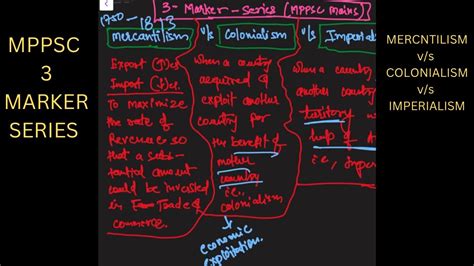 MPPSC
3
MARKER
SERIES
3- Marker - Series (MPPSC Mains)
1750 - 18 3
Mercantilism
Export (↑)es
Import (↓)es.
To maximize
the rate of
Revenue so
that a subs-
tantial amount
could be invested
in Trade &
commerce.
v/s
Colonialism
when a country
acquired &
exploit another
country for
the benefit of
mother
country
i.e.
colonialism
economic
exploitation.
v/s
Imperial
when a country
another country
territory w
help of A
i.e., imper
MERCNTILISM
v/s
COLONIALISM
v/s
IMPERIALISM